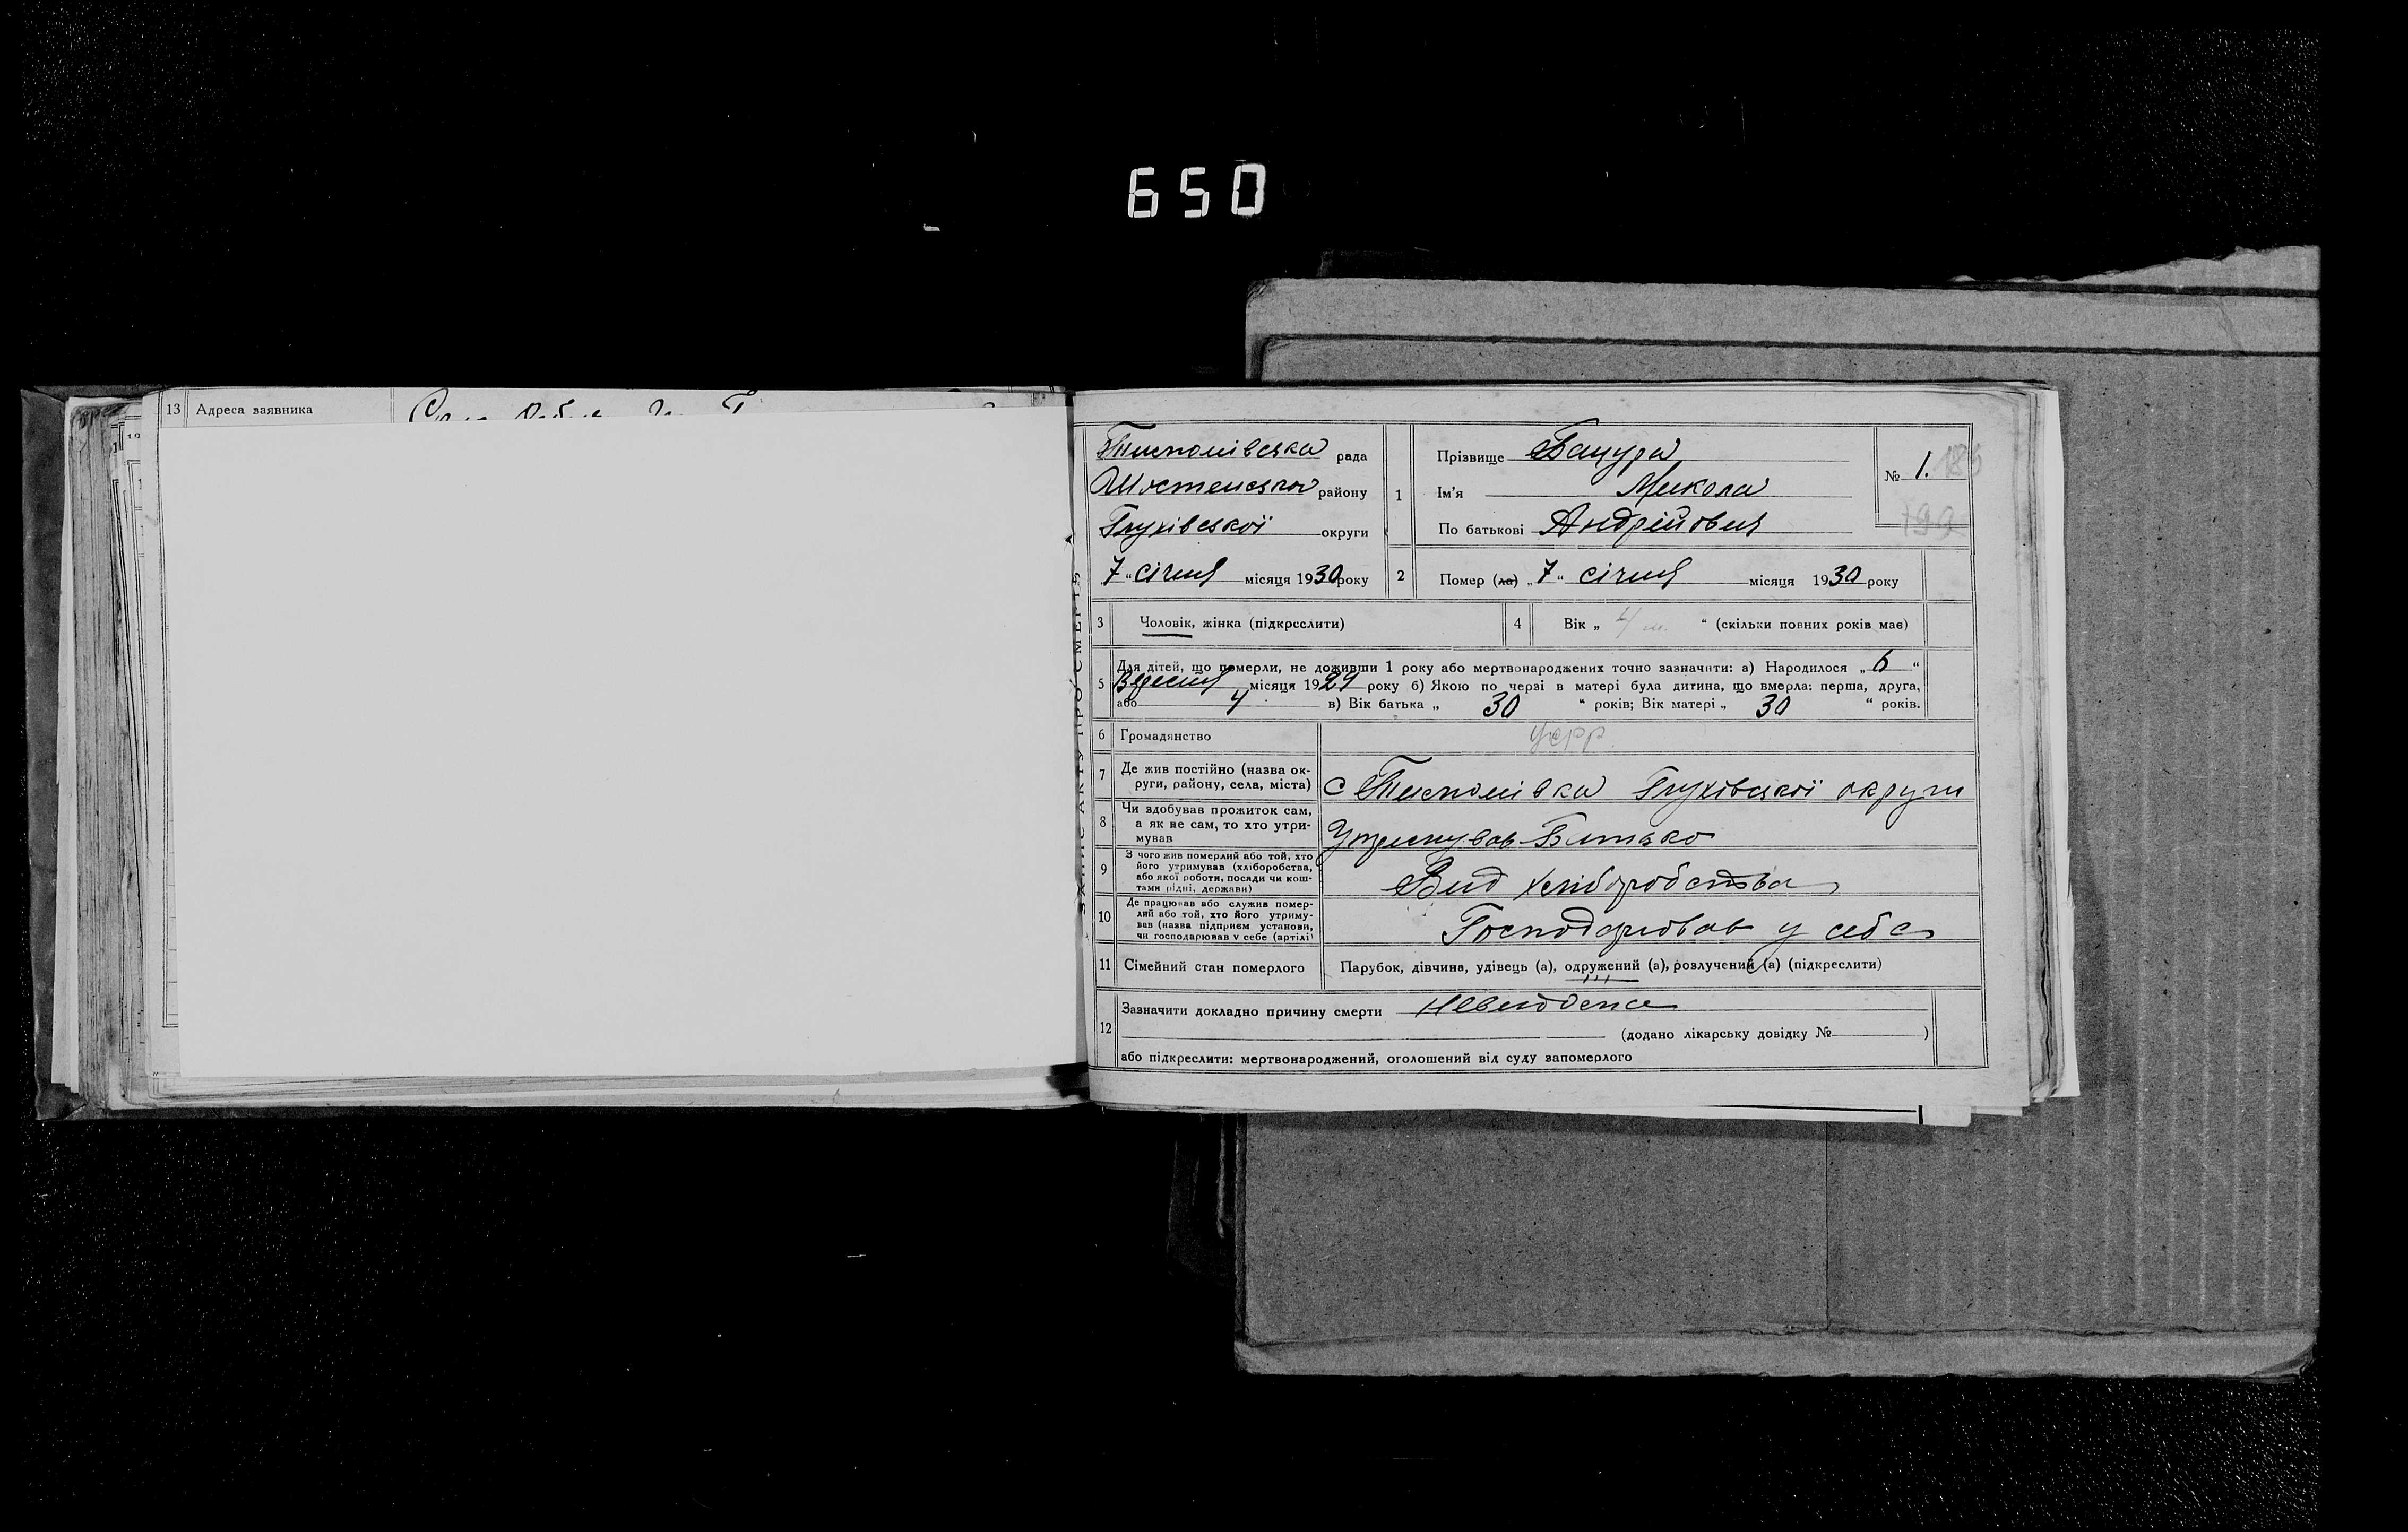 650
13 Адреса заявника
ЗАПИС АКТУ ПРО СМЕРТЬ
рада
району
Глухівської округи
„7“ січня місяця 1930 року
1
Прізвище Бацура
Ім'я Микола
По батькові Андрійович
№ 1.
2 Помер (ла) „7“ січня місяця 1930 року
3 Чоловік, жінка (підкреслити)
4 Вік „4 м.“ (скільки повних років має)
5 Для дітей, що померли, не доживши 1 року або мертвонароджених точно зазначити: а) Народилося „6“
Вересня місяця 1929 року б) Якою по черзі в матері була дитина, що вмерла: перша, друга,
або 4 в) Вік батька „30“ років; Вік матері „30“ років.
6 Громадянство УСРР
7 Де жив постійно (назва ок-
руги, району, села, міста) с Глухівської округи
8 Чи здобував прожиток сам,
а як не сам, то хто утри-
мував Утримував Батько
9 З чого жив померлий або той, хто
його утримував (хліборобства,
або якої роботи, посади чи кош-
тами рідні, держави) Вид хліборобства
10 Де працював або служив помер-
лий або той, хто його утриму-
вав (назва підприєм установи,
чи господарював у себе (артілі) Господарював у себе
11 Сімейний стан померлого Парубок, дівчина, удівець (а), одружений (а), розлучений (а) (підкреслити)
12 Зазначити докладно причину смерти Невидома
(додано лікарську довідку № )
або підкреслити: мертвонароджений, оголошений від суду запомерлого